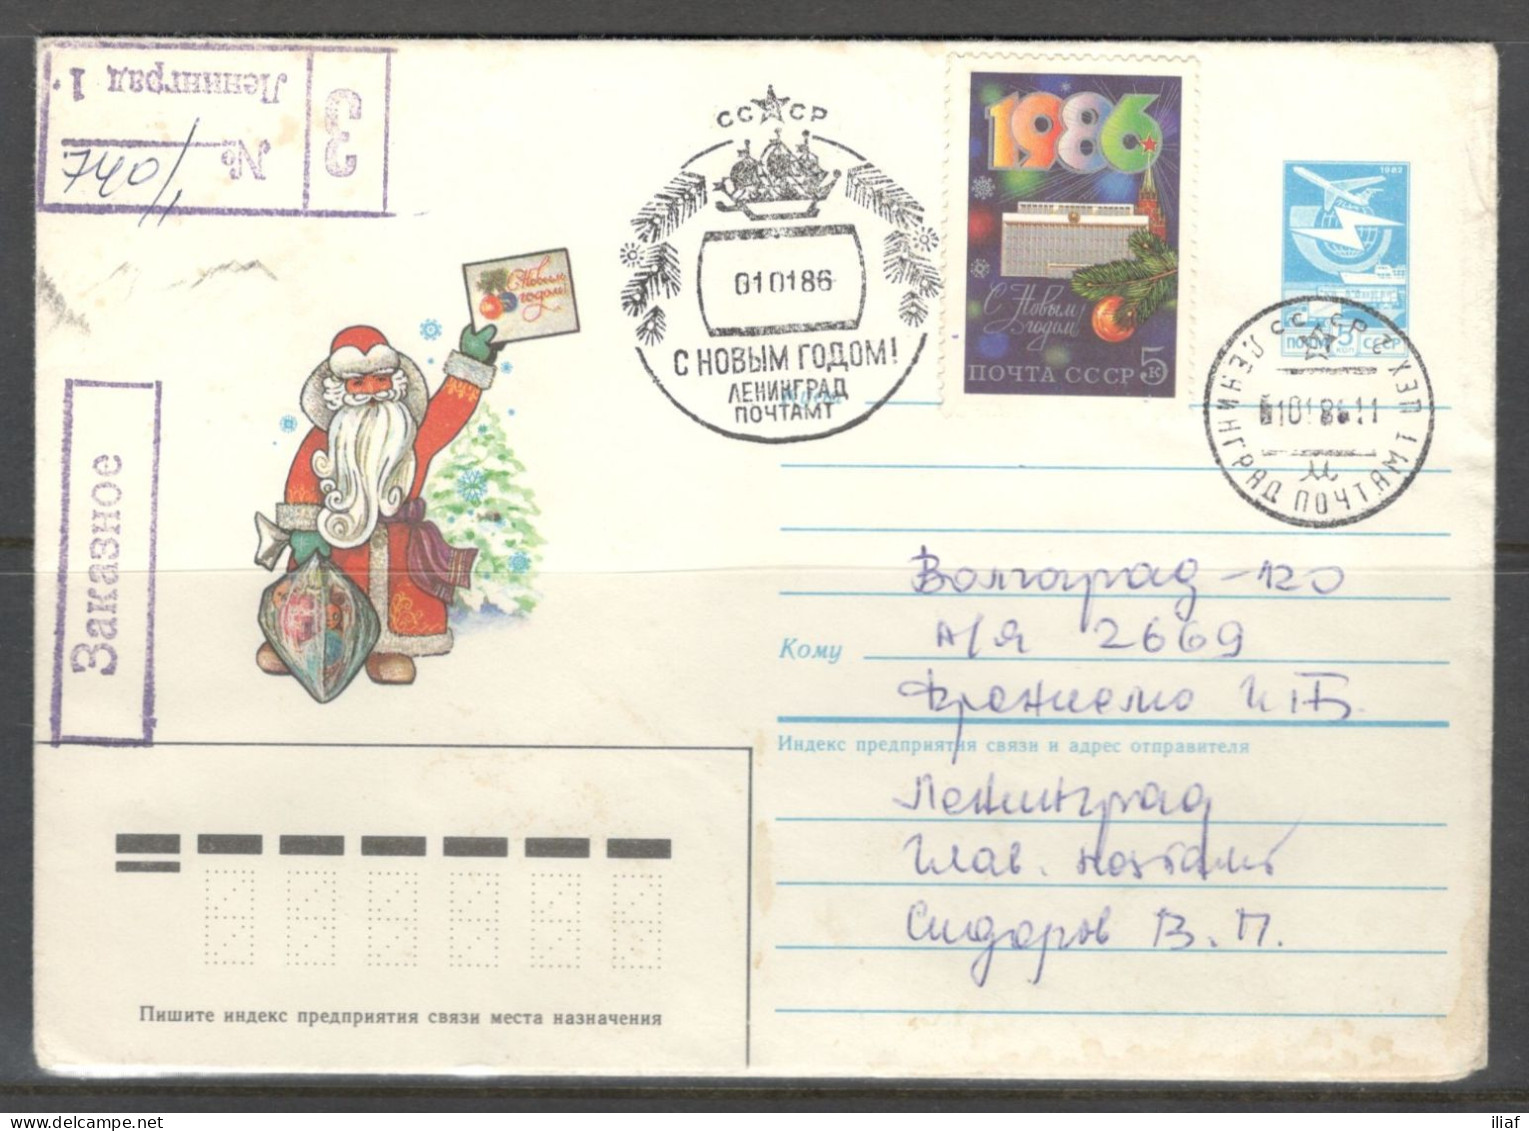 З
Ленинград 1
№ 740/1
Заказное
С Новым
годом!
СССР
010186
С НОВЫМ ГОДОМ!
ЛЕНИНГРАД
ПОЧТАМТ
1986
С Новым
годом!
ПОЧТА СССР 5 к
1982
ПОЧТА 5 коп СССР
СССР
ЛЕНИНГРАД ПОЧТАМТ
ЦЕХ 3
010186 11
Куда
Волгоград - 120
Кому А/Я 2669
И. Б.
Индекс предприятия связи и адрес отправителя
Ленинград
Глав. почтамт
Сидоров В. П.
Пишите индекс предприятия связи места назначения
iliaf